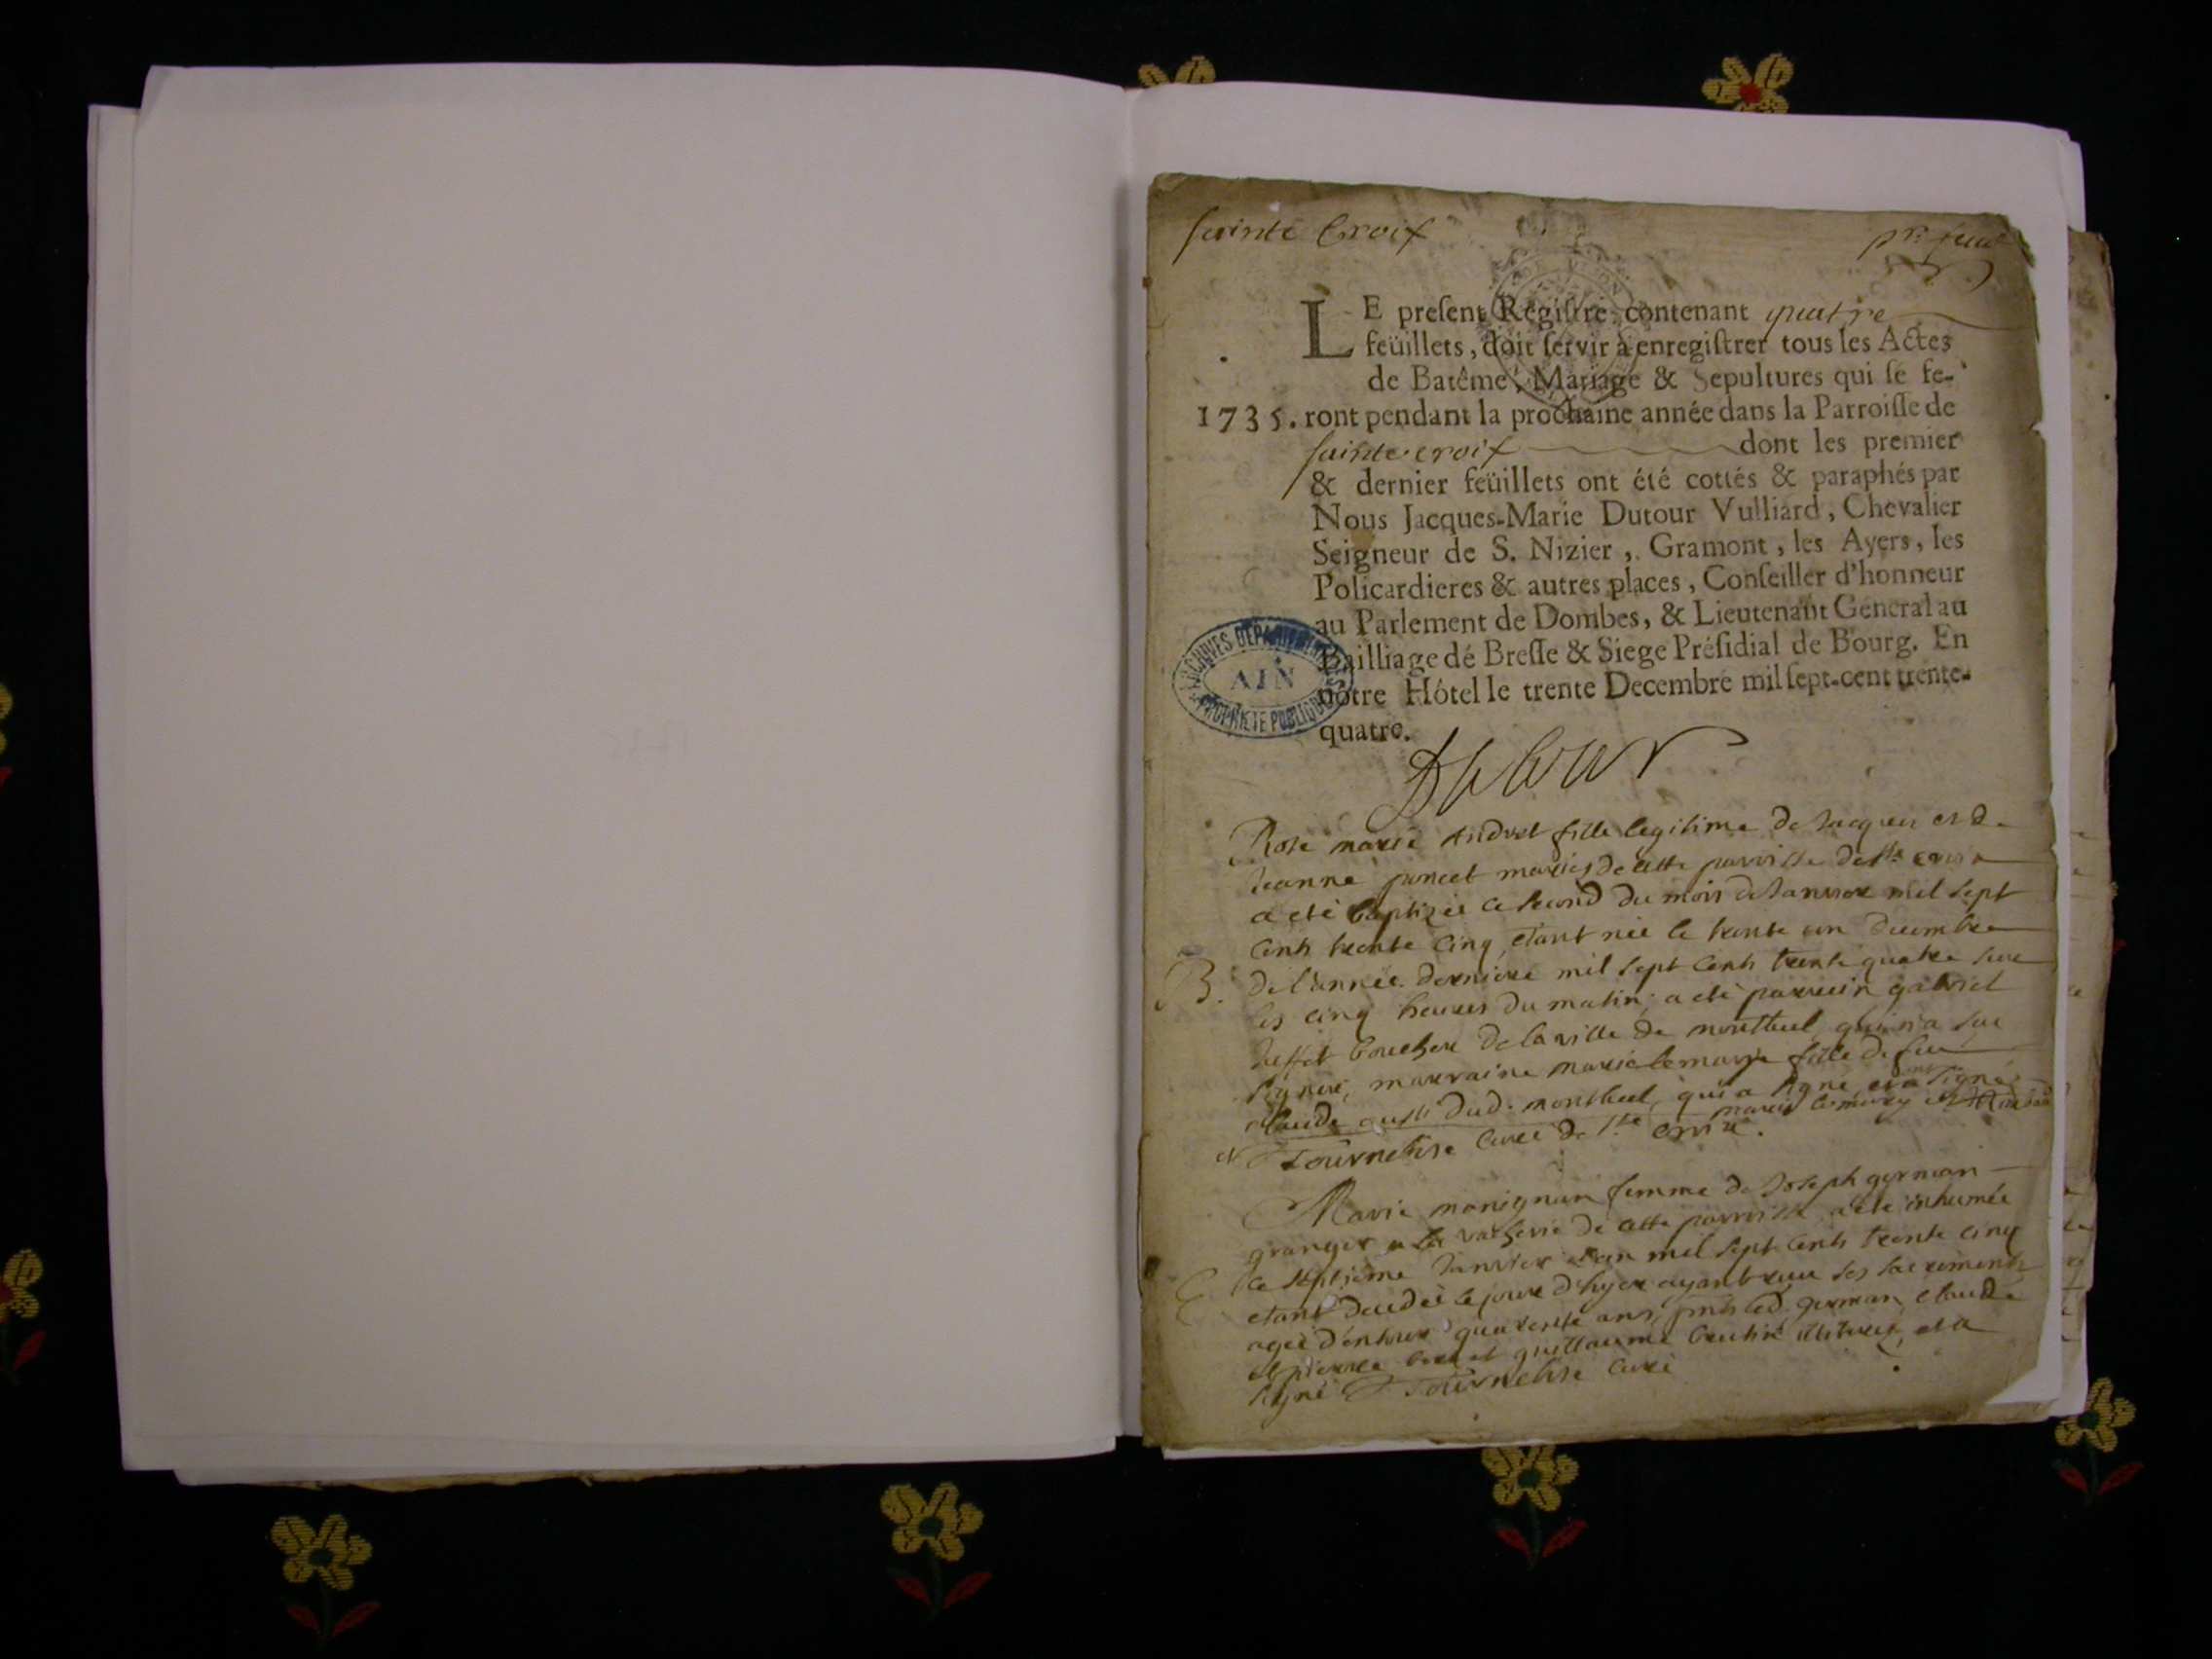 sainte Croix
pr. feuil
LE present Registre, contenant quatre
feüillets, doit servir à enregistrer tous les Actes
de Batême, Mariage & Sepultures qui se fe-
1735. ront pendant la prochaine année dans la Parroisse de
sainte croix dont les premier
& dernier feüillets ont été cottés & paraphés par
Nous Jacques-Marie Dutour Vulliard, Chevalier
Seigneur de S. Nizier, Gramont, les Ayers, les
Policardieres & autres places, Conseiller d'honneur
au Parlement de Dombes, & Lieutenant General au
Bailliage dé Bresse & Siege Présidial de Bourg. En
nôtre Hôtel le trente Decembre mil sept-cent trente-
quatre.
ARCHIVES DEPARTEMENTALES
AIN
PROPRIETE PUBLIQUE
Dutour
Rose marie Andret fille legitime de Jacques et de
Jeanne poncet mariés de cette parroisse de Ste croix
a eté baptizée ce second du mois de Janvier mil sept
cents trente cinq étant née le trente un decembre
B. de l'année derniere mil sept cents trente quatre sur
les cinq heures du matin; a eté parrein gabriel
boucher de la ville de montluel qui n'a sçu
signer, marraine marie lemary fille de feu
claude dud. montluel, qui a signé
marie lemary
Tournelise curé de Ste croix.
Marie monignun femme de Joseph german
granger a la vacherie de cette parroisse a eté inhumée
ce septième Janvier l'an mil sept cents trente cinq
etant decedée le jour d'hyer ayant reçu les sacrements
agée d'enhuir quarente ans, pnts led. german, claude
et pierre guillaume illiterez, et a
signé Tournelise curé